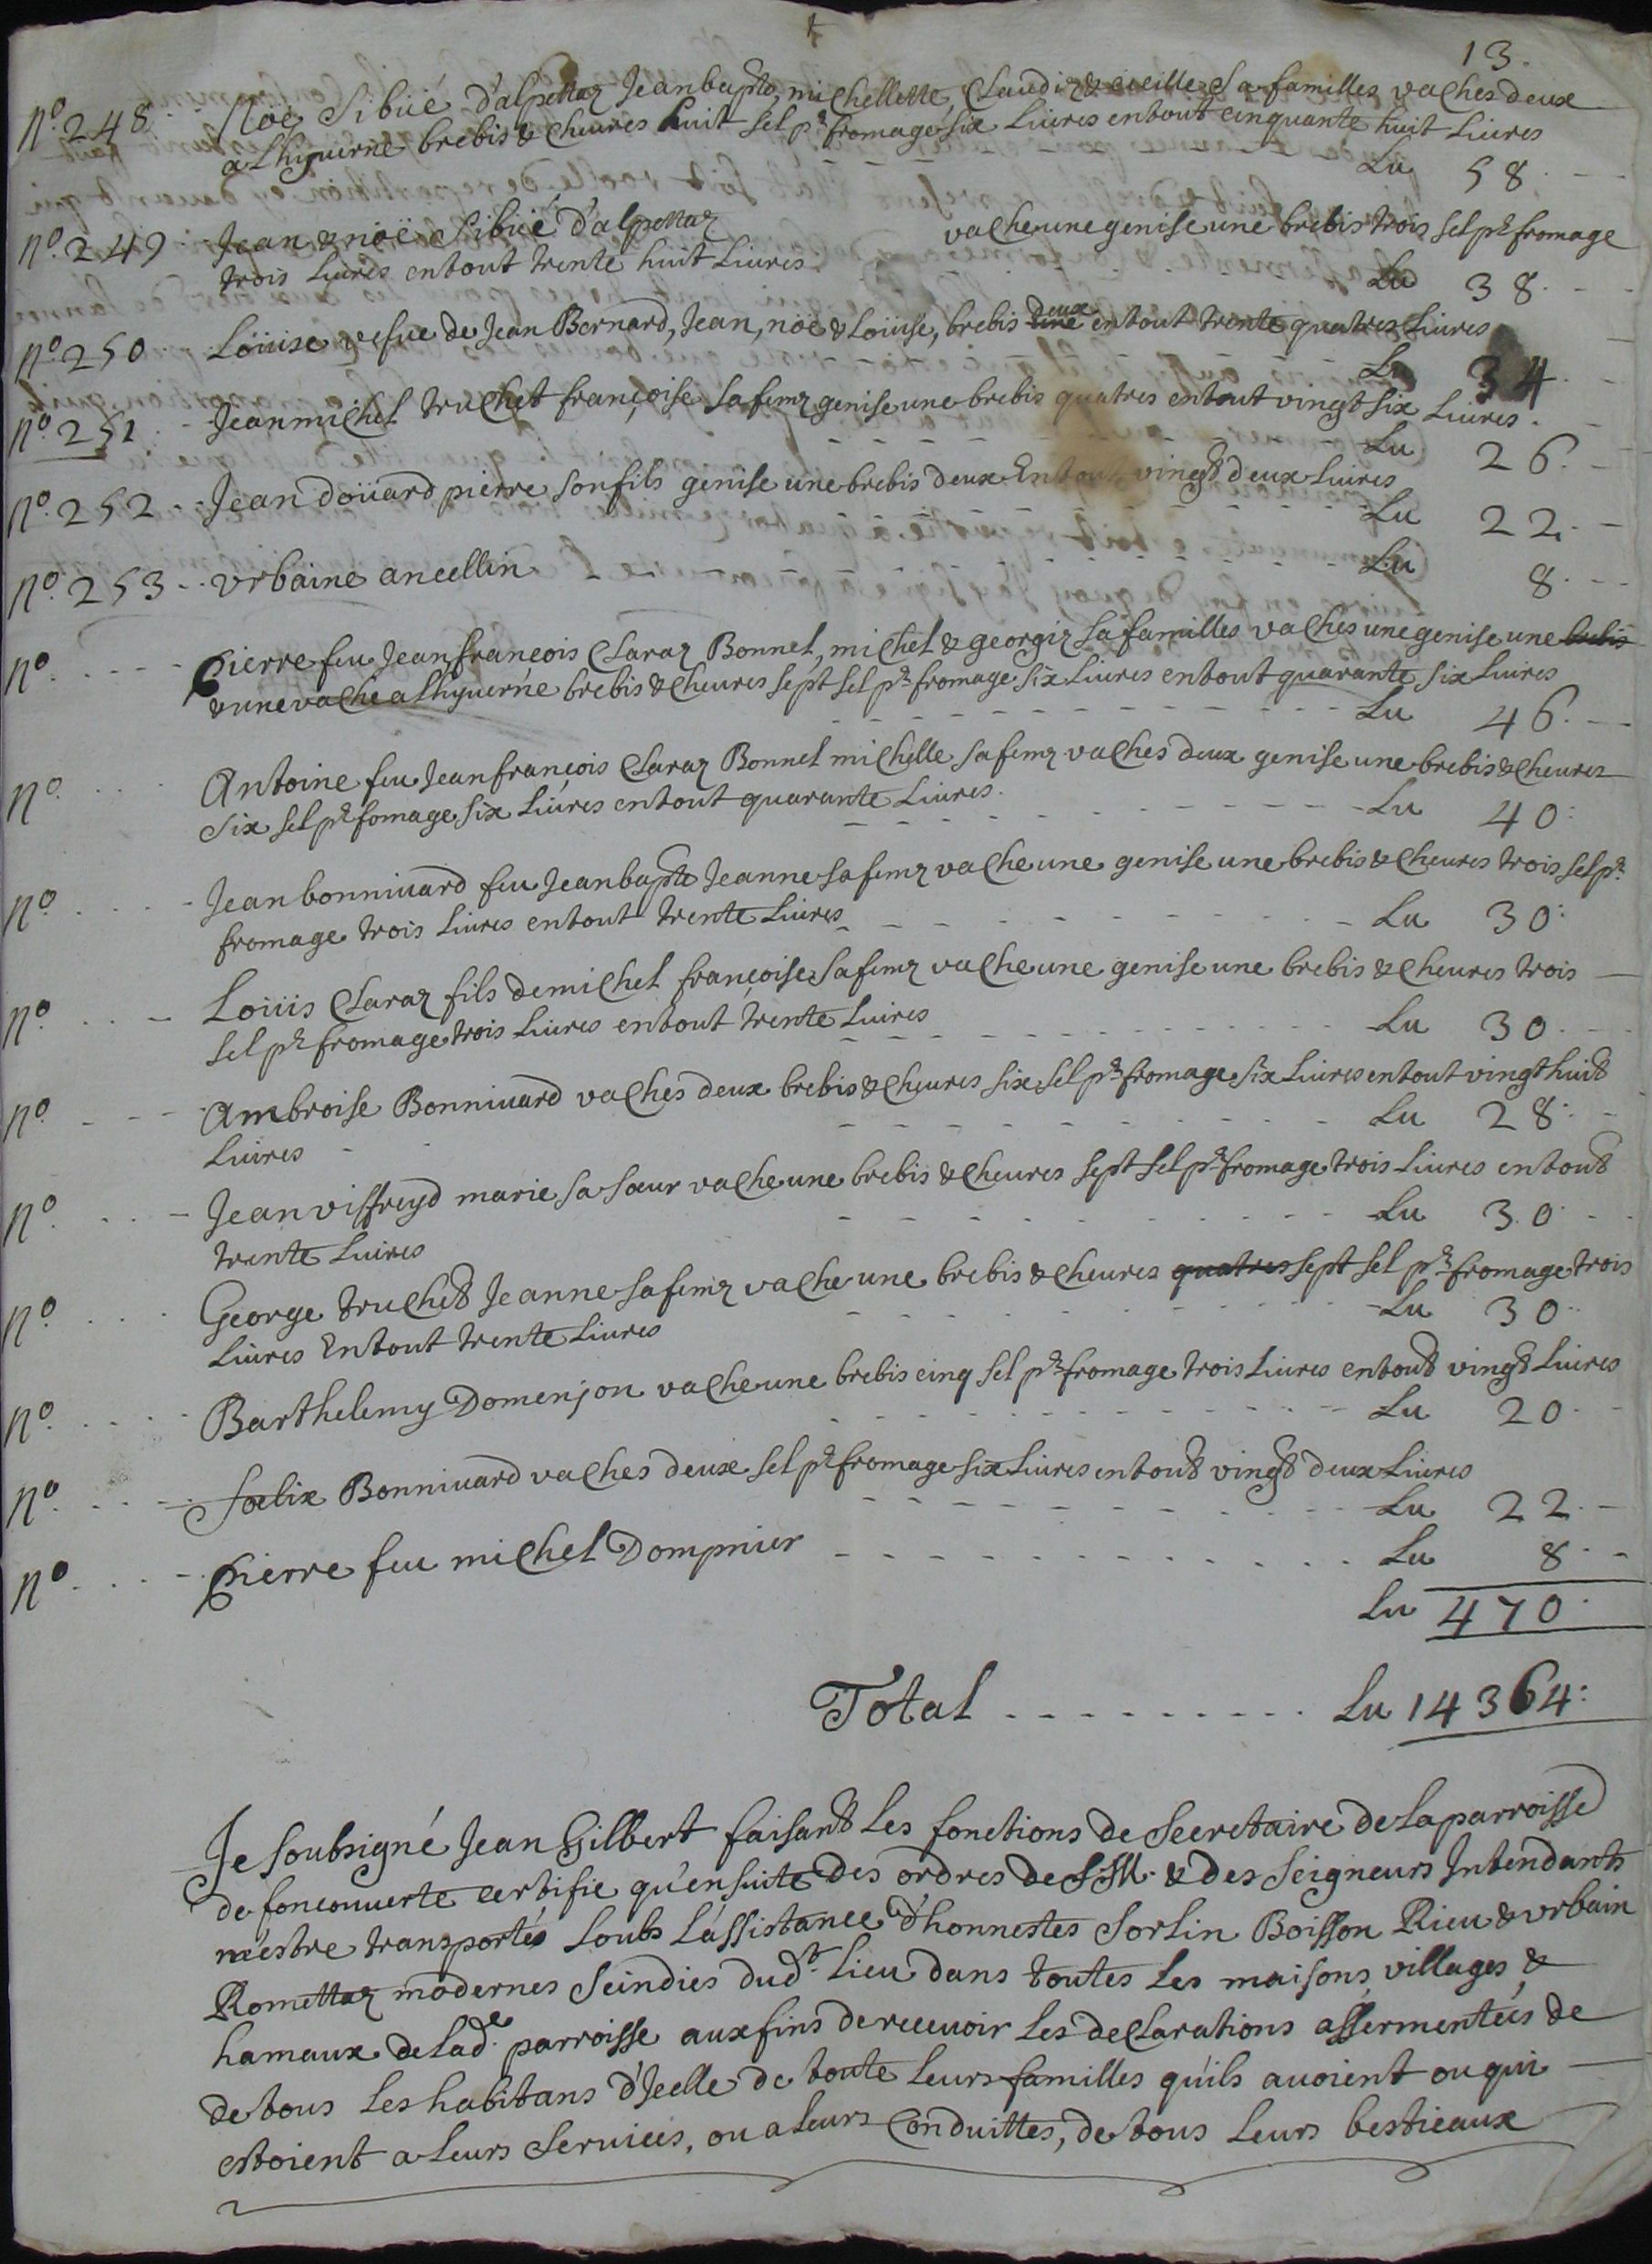 13.
N.º 248. Noë Sibüé d'alpettaz Jean bapte, michellette, Claudiz & ceeille sa familles vaches deux
a Lhyuerne brebis & cheures huit sel pr. fromage six Liures entout cinquante huit Liures
Lu 58.
N.º 249. Jean & noë Sibüé d'alpettaz vache une genise une brebis trois sel pr. fromage
trois Liures entout trente huit Liures.
Lu 38.
N.º 250. Loüise vefue de Jean Bernard, Jean, noë & Loüise, brebis deux entout trente quatres Liures
Lu 34.
N.º 251. Jean michel truchet françoise sa femz genise une brebis quatres entout vingt six Liures.
Lu 26.
N.º 252. Jean doüard pierre son fils genise une brebis deux Entout vingt deux Liures
Lu 22.
N.º 253. Vrbaine ancellin Lu 8.
N.º Pierre feu Jean françois Claraz Bonnel, michel & georgiz sa familles vaches une genise une brebis
& une vache a Lhyuerne brebis & cheures sept sel pr. fromage six Liures entout quarante six Liures
Lu 46.
N.º Antoine feu Jean françois Claraz Bonnel michelle sa femz vaches deux genise une brebis & cheures
six sel pr. fomage six Liures entout quarante Liures.
Lu 40:
N.º Jean bonniuard feu Jean bapte Jeanne sa femz vache une genise une brebis & cheures trois sel pr.
fromage trois Liures entout trente Liures
Lu 30:
N.º Loüis Claraz fils de michel françoise sa femz vache une genise une brebis & cheures trois
sel pr. fromage trois Liures entout trente Liures
Lu 30.
N.º Ambroise Bonniuard vaches deux brebis & cheures six sel pr. fromage six Liures entout vingt huit
Liures
Lu 28:
N.º Jean viffreyd marie sa sœur vache une brebis & cheures sept sel pr. fromage trois Liures entout
trente Liures
Lu 30.
N.º George truchet Jeanne sa femz vache une brebis & cheures quatres sept sel pr. fromage trois
Liures Entout trente Liures
Lu 30.
N.º Barthelemy Domenjon vache une brebis cinq sel pr. fromage trois Liures entout vingt Liures
Lu 20.
N.º Fœlix Bonniuard vaches deux sel pr. fromage six Liures entout vingt deux Liures
Lu 22.
N.º Pierre feu michel Dompnier Lu 8.
Lu 470.
Total Lu 14364:
Je soubsigné Jean Gilbert faisant Les fonctions de Secretaire de La parroisse
de fonconuerte certifie qu'ensuite des ordres de S:M. & des Seigneurs Intendants
m'estre transportés soubs L'assistance d'honnestes Sorlin Boisson Rieu & vrbain
Romettaz modernes Seindics dudt. Lieu dans toutes Les maisons, villages, &
hameaux de Lade. parroisse aux fins de receuoir Les declarations assermenteés de
de tous Les habitans d'Jcelle de toute Leurs familles qu'ils auoient ou qui
estoient a Leurs Seruices, ou a Leurs Conduittes, de tous Leurs bestieaux